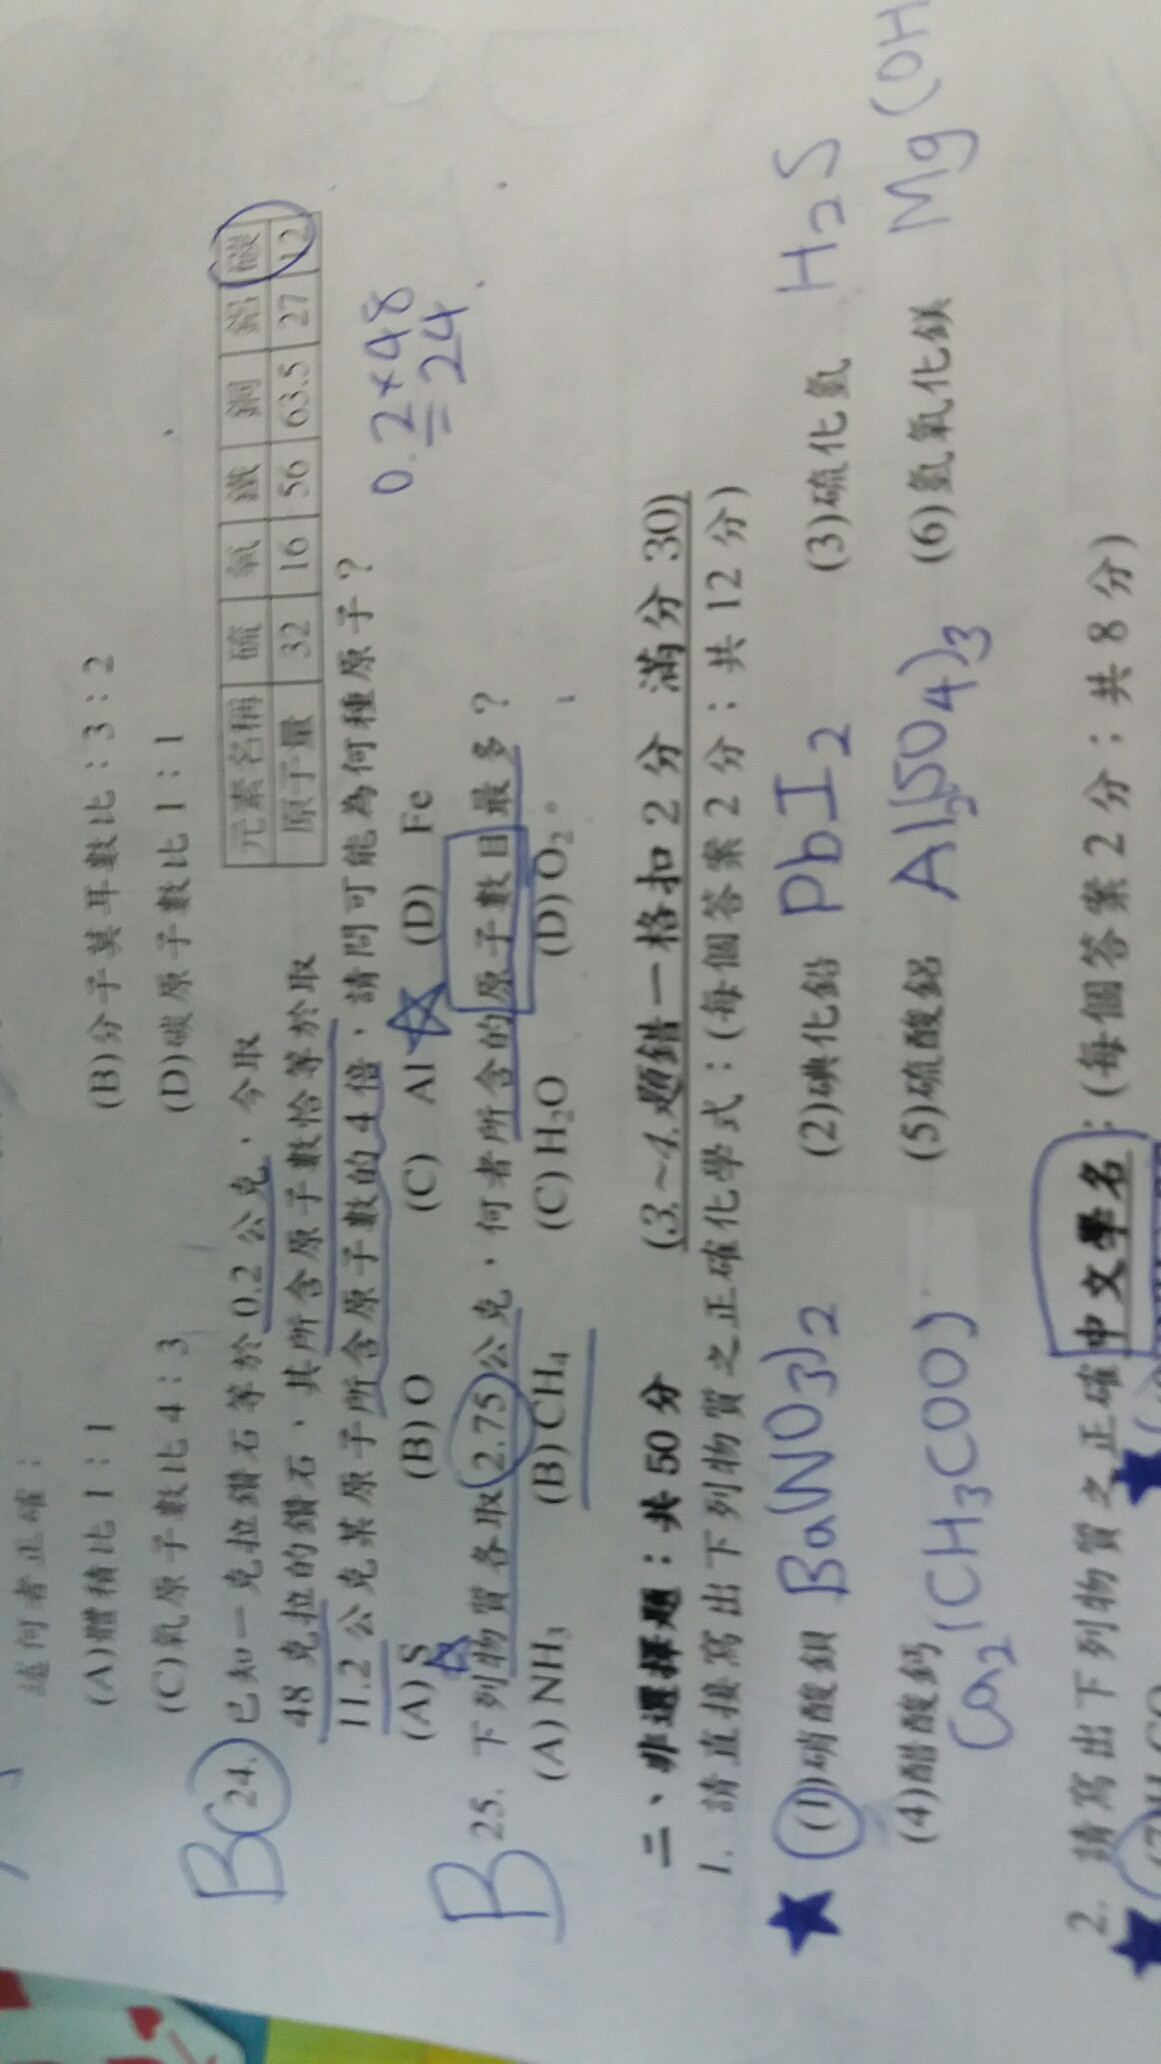 越何者正確：
(A)體積比 1：1 (B)分子莫耳數比：3：2
(C)氧原子數比 4：3 (D)碳原子數比 1：1
B 24. 已知一克拉鑽石等於 0.2 公克，今取
48 克拉的鑽石，其所含原子數恰等於取
11.2 公克某原子所含原子數的 4 倍，請問可能為何種原子？
元素名稱 硫 氧 鐵 銅 鋁 碳
原子量 32 16 56 63.5 27 12
0.2×48
=24
(A) S (B) O (C) Al (D) Fe
B 25. 下列物質各取 2.75 公克，何者所含的原子數目最多？
(A) NH₃ (B) CH₄ (C) H₂O (D) O₂。
二、非選擇題：共 50 分 (3.~4.題錯一格扣 2 分 滿分 30)
1. 請直接寫出下列物質之正確化學式：(每個答案 2 分；共 12 分)
(1)硝酸鋇 Ba(NO₃)₂ (2)碘化鉛 PbI₂ (3)硫化氫 H₂S
(4)醋酸鈣 Ca₂(CH₃COO) (5)硫酸鋁 Al₂(SO₄)₃ (6)氫氧化鎂 Mg(OH
2. 請寫出下列物質之正確中文學名：(每個答案 2 分；共 8 分)